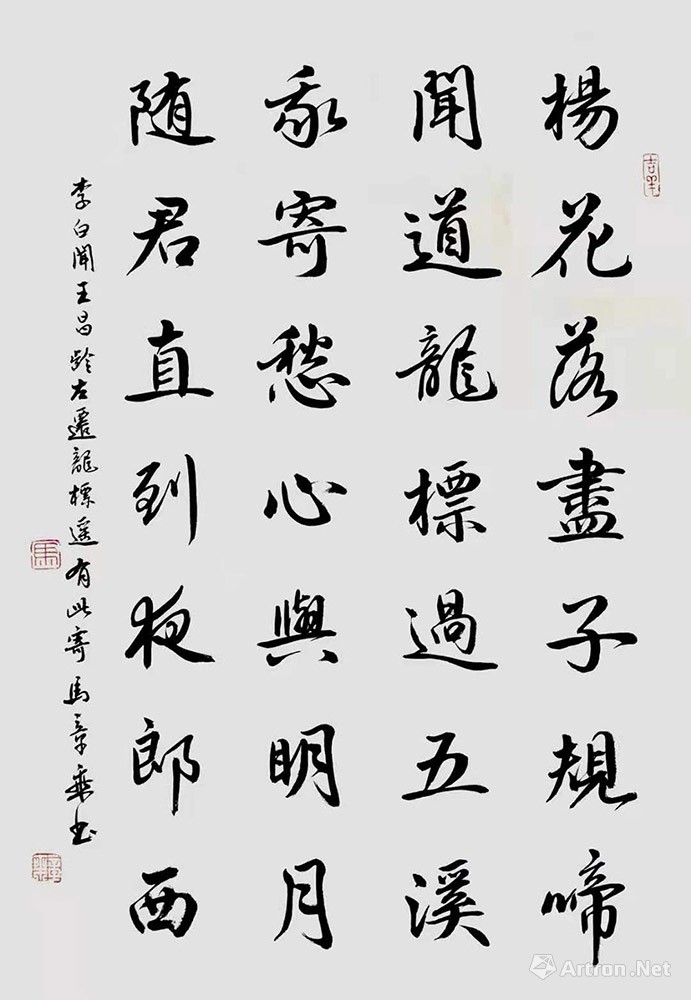 楊花落盡子規啼
聞道龍標過五溪
我寄愁心與明月
随君直到夜郎西
李白聞王昌龄左遷龍標遥有此寄 馬章乘书
Artron.Net